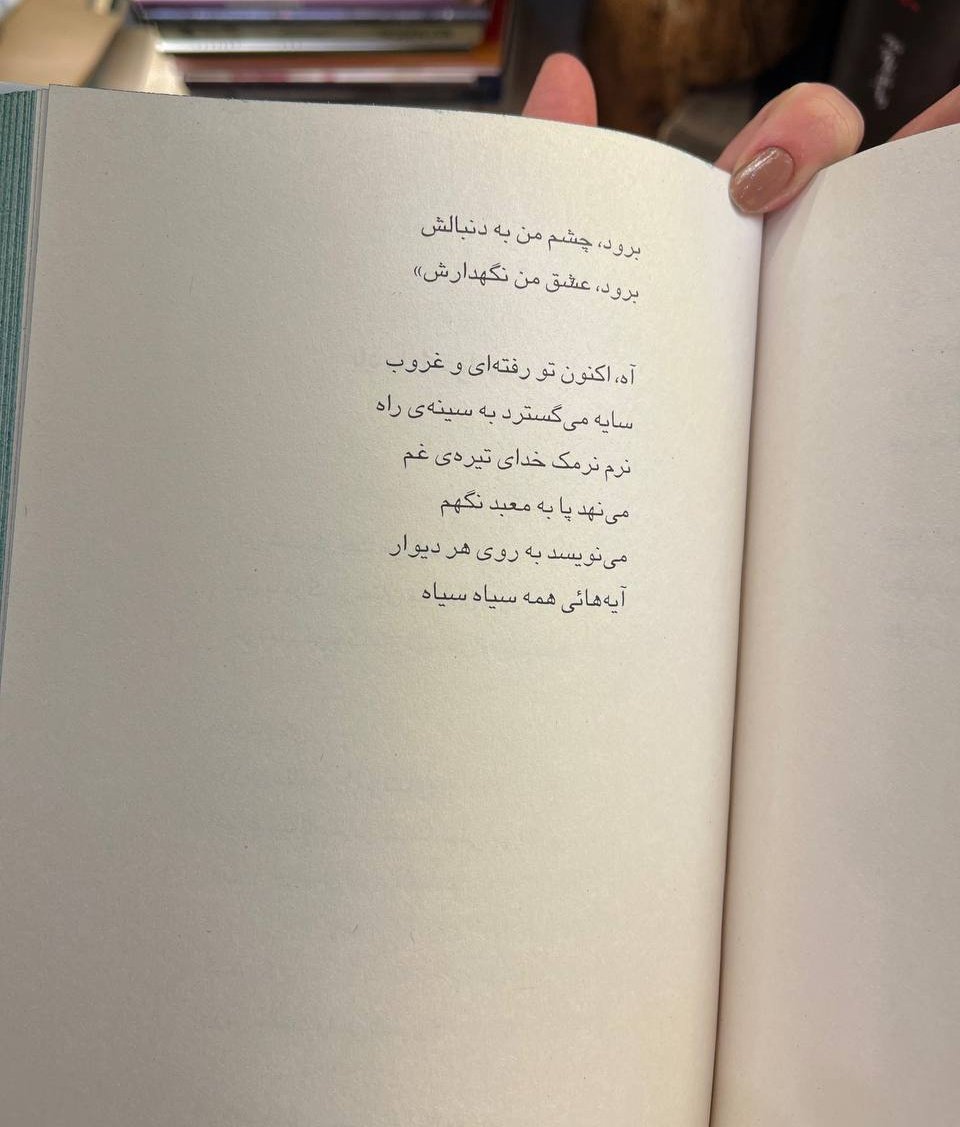 برود، چشم من به دنبالش
برود، عشق من نگهدارش»
آه، اکنون تو رفته‌ای و غروب
سایه می‌گسترد به سینه‌ی راه
نرم نرمک خدای تیره‌ی غم
می‌نهد پا به معبد نگهم
می‌نویسد به روی هر دیوار
آیه‌هائی همه سیاه سیاه